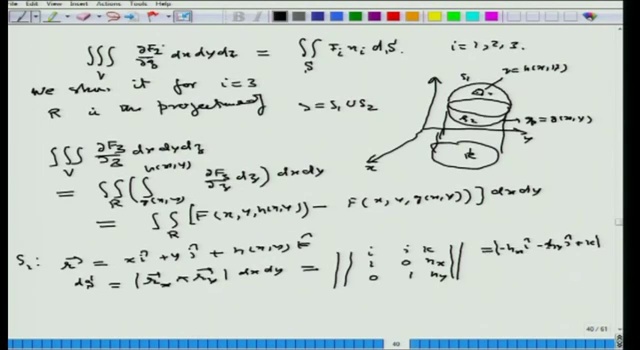 File Edit View Insert Actions Tools Help
∭_V ∂F_i/∂z dx dy dz = ∬_S F_i n_i dS. i = 1, 2, 3.
We show it for i = 3
R is the projection of S = S1 ∪ S2
S1 z = h(x,y)
S2 z = g(x,y)
R
x
y
∭_V ∂F3/∂z dx dy dz
= ∬_R ( ∫_{g(x,y)}^{h(x,y)} ∂F3/∂z dz ) dx dy
= ∬_R [F(x, y, h(x,y)) - F(x, y, g(x,y))] dx dy
S1: r⃗ = x î + y ĵ + h(x,y) k̂
dS = |r⃗_x × r⃗_y| dx dy = || i j k ; 1 0 h_x ; 0 1 h_y || = |-h_x î - h_y ĵ + k|
48
48 / 61